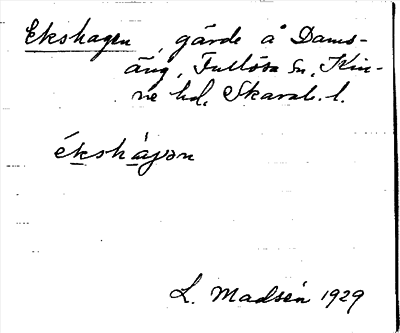 Ekshagen, gärde å Dams-
äng, Fullösa sn, Kin-
ne hd, Skarab. l.
ékshàgən
L. Madsén 1929